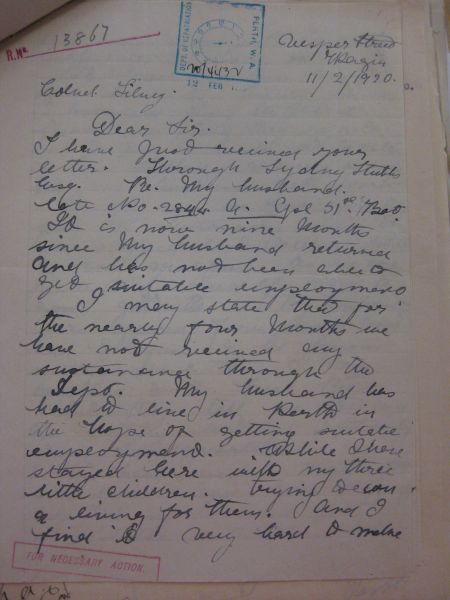 R.No. 13867
DEPT. OF REPATRIATION
PERTH, W.A.
12 FEB
Vesper Street
Wagin
11/2/1920.
Colnel
Dear Sir.
I have just recieved your
letter. Through Sydney Stubbs
Esq. Re. My husband.
late No. 2844. A. Coy 51st Batt
It is now nine Months
since My husband returned
and has not been able to
get suitable employment
I may state that for
the nearly four Months we
have not recieved any
sustanance through the
Dept. My husband has
had to live in Perth in
the hope of getting suitable
employment. While I have
stayed here with my three
little children. trying to earn
a living for them. And I
find it very hard to make
FOR NECESSARY ACTION.